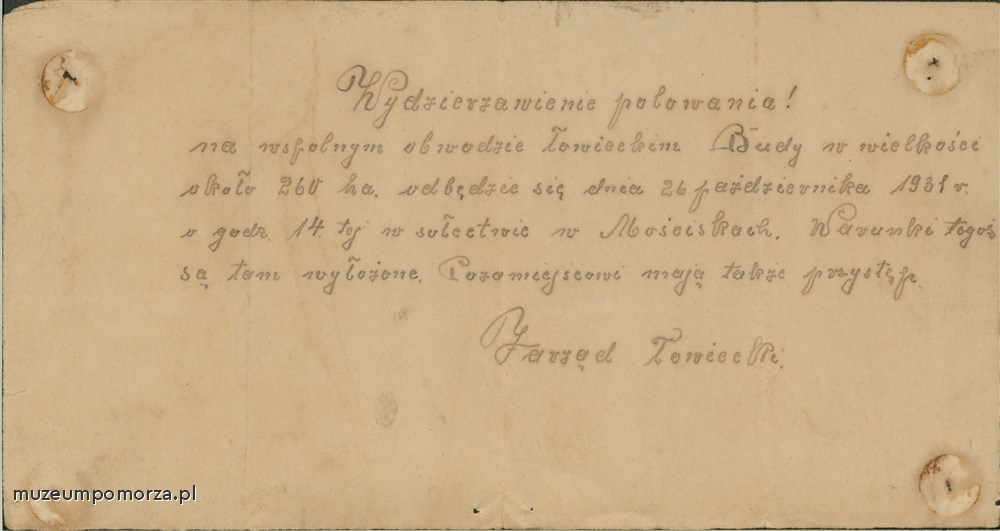 Wydzierzawienie polowania!
na wspolnym obwodzie łowieckim Budy w wielkości
około 260 ha. odbędzie się dnia 26 października 1931 r.
o godz. 14 tej w sołectwie w Mościskach. Warunki tegoż
są tam wyłożone. Pozamiejscowi mają także przystęp.
Zarząd Łowiecki.
muzeumpomorza.pl